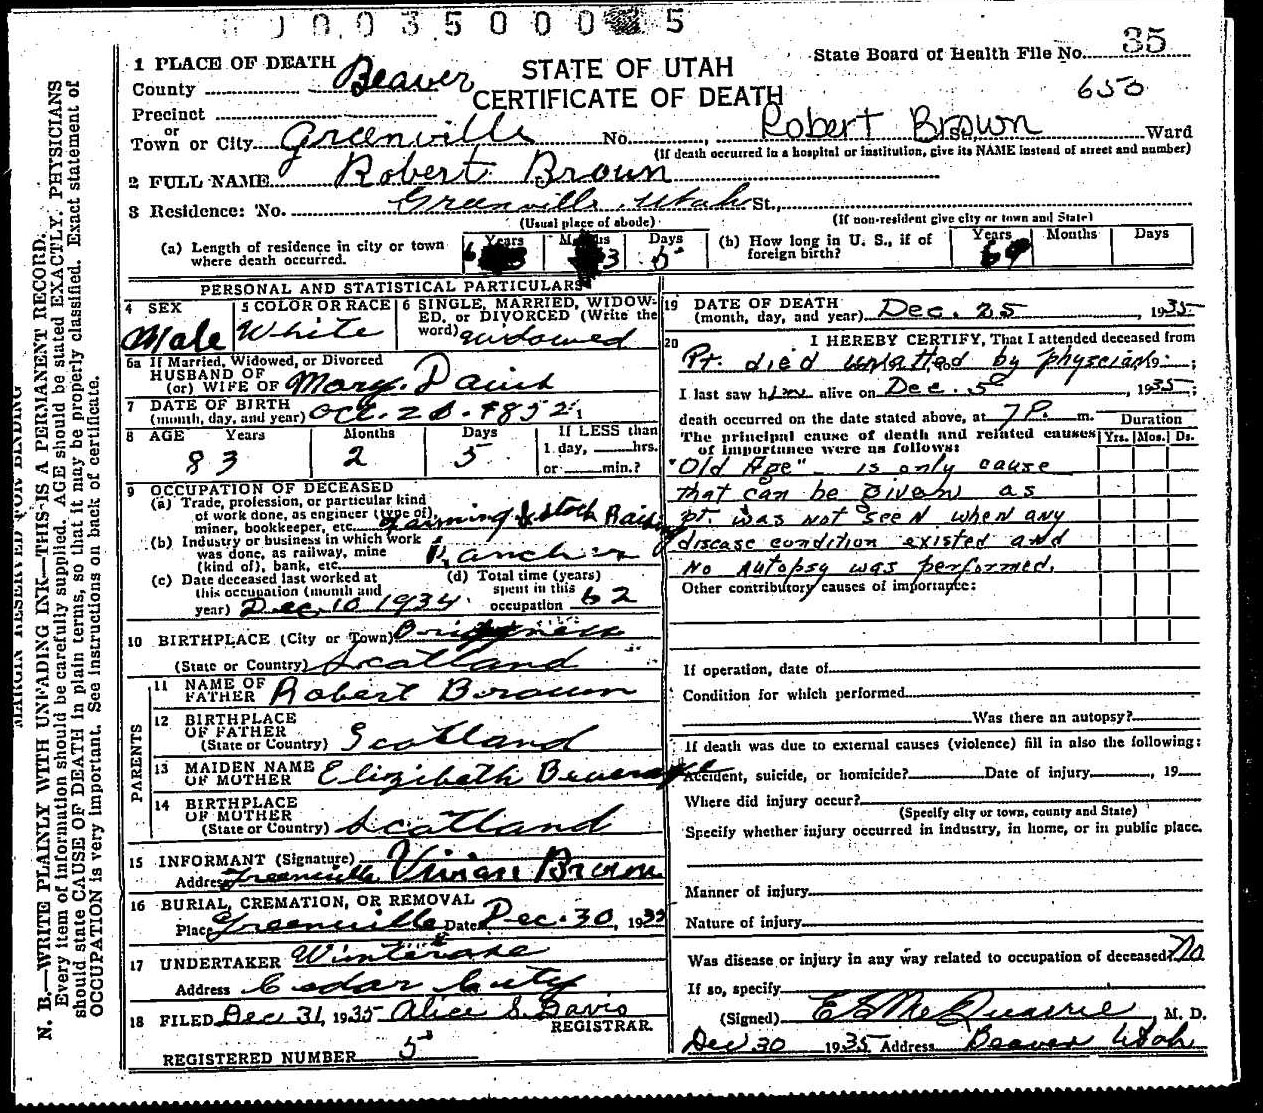 0035000 5
State Board of Health File No. 35
1 PLACE OF DEATH
STATE OF UTAH
County Beaver
CERTIFICATE OF DEATH
650
Precinct
or
Town or City Greenville No. , Robert Brown St. Ward
(If death occurred in a hospital or institution, give its NAME instead of street and number)
2 FULL NAME Robert Brown
3 Residence: No. Greenville, Utah St.,
(Usual place of abode) (If non-resident give city or town and State)
(a) Length of residence in city or town where death occurred. Years 6 Months 3 Days 5
(b) How long in U. S., if of foreign birth? Years 69 Months Days
PERSONAL AND STATISTICAL PARTICULARS
4 SEX Male
5 COLOR OR RACE White
6 SINGLE, MARRIED, WIDOWED, or DIVORCED (Write the word) widowed
6a If Married, Widowed, or Divorced
HUSBAND OF
(or) WIFE OF Mary
7 DATE OF BIRTH
(month, day, and year) Oct. 20. 1852
8 AGE Years Months Days If LESS than
83 2 5 1 day, hrs.
or min.?
9 OCCUPATION OF DECEASED
(a) Trade, profession, or particular kind
of work done, as engineer (type of),
miner, bookkeeper, etc. Farming & Stock Raising
(b) Industry or business in which work
was done, as railway, mine
(kind of), bank, etc. Rancher
(c) Date deceased last worked at
this occupation (month and
year) Dec. 10 1934
(d) Total time (years)
spent in this
occupation 62
10 BIRTHPLACE (City or Town)
(State or Country) Scotland
PARENTS
11 NAME OF
FATHER Robert Brown
12 BIRTHPLACE
OF FATHER
(State or Country) Scotland
13 MAIDEN NAME
OF MOTHER Elizibeth Beverage
14 BIRTHPLACE
OF MOTHER
(State or Country) Scotland
15 INFORMANT (Signature) Vivian Brown
Address Greenville
16 BURIAL, CREMATION, OR REMOVAL
Place Greenville Date Dec. 30, 1935
17 UNDERTAKER Winterose
Address Cedar City
18 FILED Dec 31, 1935 Alice S. Davis
REGISTRAR.
REGISTERED NUMBER 5
19 DATE OF DEATH
(month, day, and year) Dec. 25, 1935
20 I HEREBY CERTIFY, That I attended deceased from
Pt. died unatted by physcian ;
I last saw him alive on Dec. 5, 1935;
death occurred on the date stated above, at 7 P. m.
Duration
The principal cause of death and related causes
of importance were as follows:
Yrs. Mos. Ds.
"Old Age" is only cause
that can be given as
pt. was not seen when any
disease condition existed and
no autopsy was performed.
Other contributory causes of importance:
If operation, date of
Condition for which performed
Was there an autopsy?
If death was due to external causes (violence) fill in also the following:
Accident, suicide, or homicide? Date of injury , 19
Where did injury occur?
(Specify city or town, county and State)
Specify whether injury occurred in industry, in home, or in public place.
Manner of injury
Nature of injury
Was disease or injury in any way related to occupation of deceased? No
If so, specify
(Signed) E S McQuarrie, M. D.
Dec 30 1935 Address Beaver Utah
MARGIN RESERVED FOR BINDING
N. B.—WRITE PLAINLY WITH UNFADING INK—THIS IS A PERMANENT RECORD.
Every item of information should be carefully supplied. AGE should be stated EXACTLY. PHYSICIANS
should state CAUSE OF DEATH in plain terms, so that it may be properly classified. Exact statement of
OCCUPATION is very important. See instructions on back of certificate.